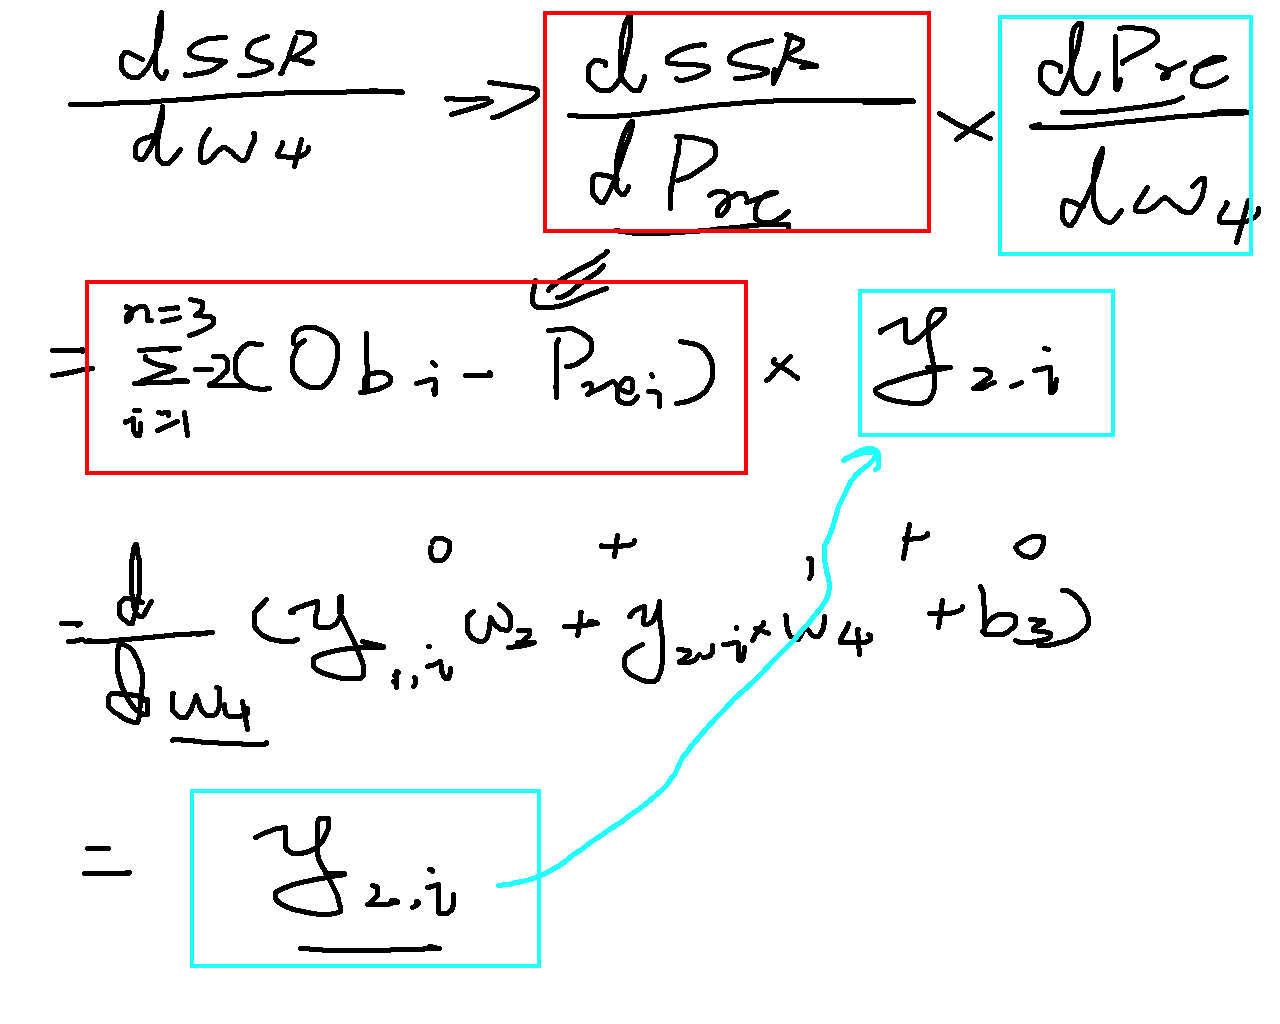 dSSR/dw₄ ⇒> dSSR/dPre × dPre/dw₄
= Σ n=3 i=1 -2(Obᵢ - Preᵢ) × y₂.ᵢ
0 + 1 + 0
= d/dw₄ (y₁,ᵢ w₂ + y₂,ᵢ × w₄ + b₃)
= y₂,ᵢ